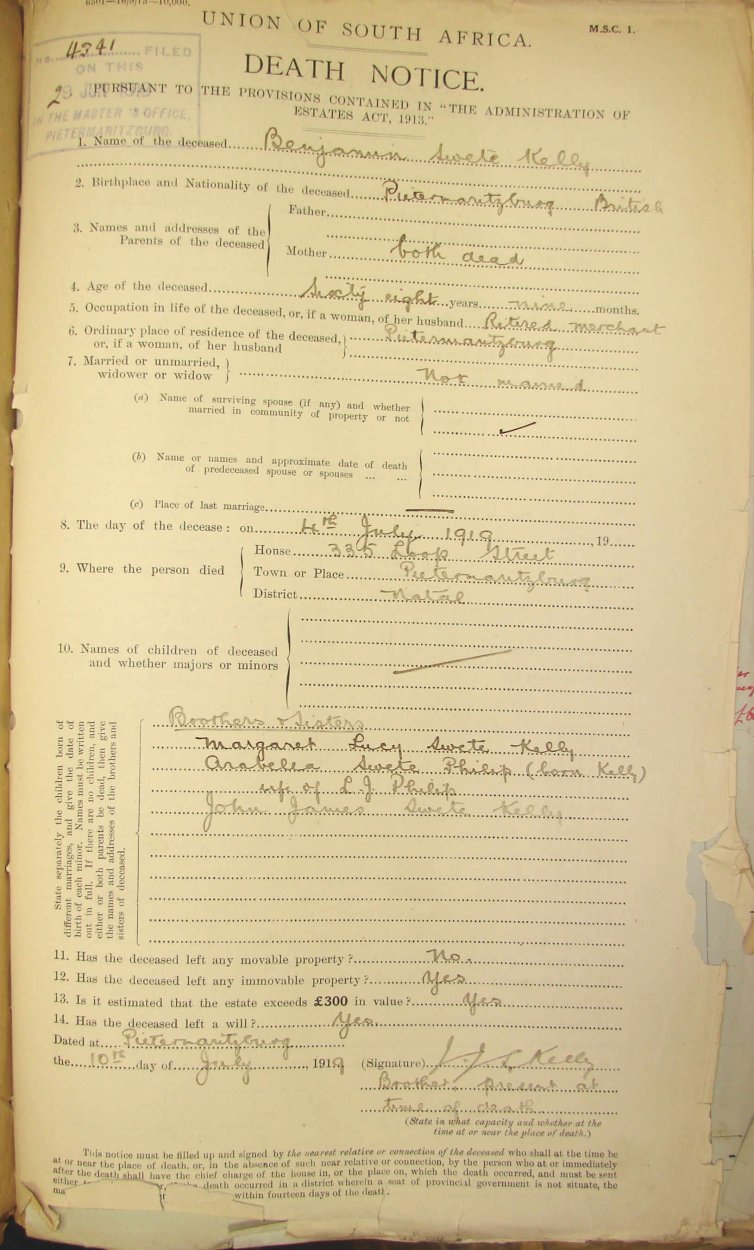 6501—16/9/13—10,000.
UNION OF SOUTH AFRICA.
M.S.C. 1.
No. 4341 FILED
ON THIS
JUL
IN THE MASTER'S OFFICE,
PIETERMARITZBURG.
DEATH NOTICE.
PURSUANT TO THE PROVISIONS CONTAINED IN "THE ADMINISTRATION OF
ESTATES ACT, 1913."
1. Name of the deceased Benjamin Swete Kelly
2. Birthplace and Nationality of the deceased Pietermaritzburg British
3. Names and addresses of the Parents of the deceased
Father
Mother both dead
4. Age of the deceased Sixty eight years nine months.
5. Occupation in life of the deceased, or, if a woman, of her husband Retired merchant
6. Ordinary place of residence of the deceased, or, if a woman, of her husband Pietermaritzburg
7. Married or unmarried, widower or widow Not married
(a) Name of surviving spouse (if any) and whether married in community of property or not
(b) Name or names and approximate date of death of predeceased spouse or spouses ... ...
(c) Place of last marriage —
8. The day of the decease: on 4th July 1919, 19
9. Where the person died
House 335 Loop Street
Town or Place Pietermaritzburg
District Natal
10. Names of children of deceased and whether majors or minors
State separately the children born of
different marriages, and give the date of
birth of each minor. Names must be written
out in full. If there are no children, and
either or both parents be dead, then give
the names and addresses of the brothers and
sisters of deceased.
Brothers & Sisters
Margaret Lucy Swete Kelly
Arabella Swete Philip (born Kelly)
wife of L.J. Philip
John James Swete Kelly
11. Has the deceased left any movable property? No.
12. Has the deceased left any immovable property? Yes
13. Is it estimated that the estate exceeds £300 in value? Yes
14. Has the deceased left a will? Yes
Dated at Pietermaritzburg
the 10th day of July, 1919
(Signature) J. J. S. Kelly
Brother, present at
time of death
(State in what capacity and whether at the
time at or near the place of death.)
This notice must be filled up and signed by the nearest relative or connection of the deceased who shall at the time be
at or near the place of death, or, in the absence of such near relative or connection, by the person who at or immediately
after the death shall have the chief charge of the house in, or the place on, which the death occurred, and must be sent
either death occurred in a district wherein a seat of provincial government is not situate, the
within fourteen days of the death.